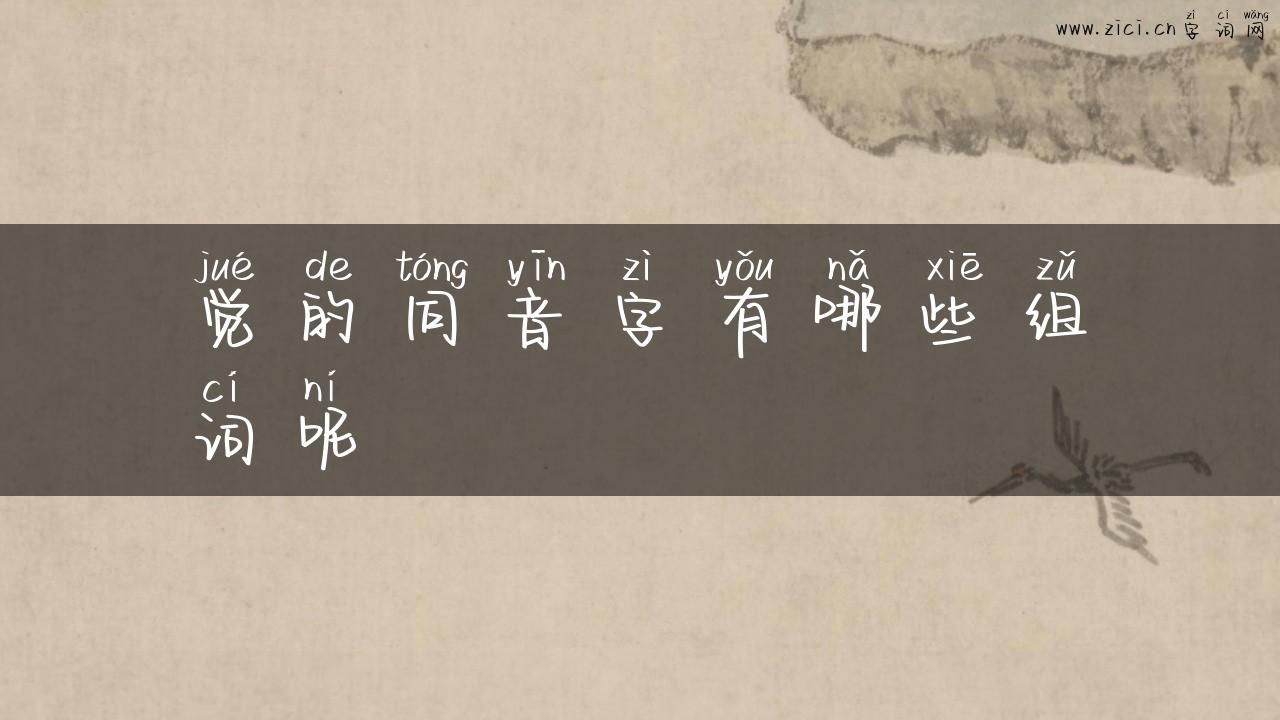 zì cí wǎng
www.zici.cn 字词网
jué de tóng yīn zì yǒu nǎ xiē zǔ
觉的同音字有哪些组
cí ní
词呢